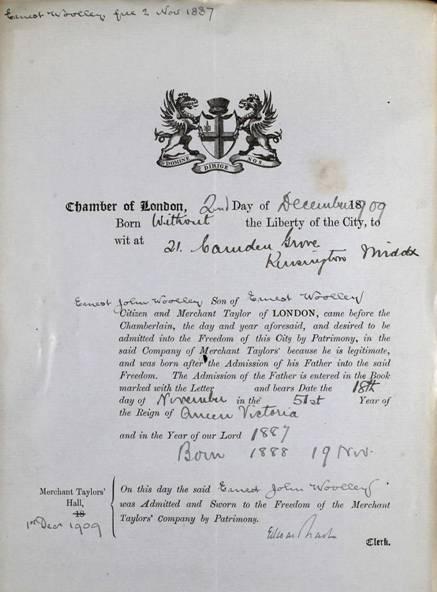 Ernest Woolley free 2 Nov 1887
DOMINE DIRIGE NOS
Chamber of London, 2nd Day of December 1909
Born Without the Liberty of the City, to
wit at 21. Camden Grove
Kensington Middx
Ernest John Woolley Son of Ernest Woolley
Citizen and Merchant Taylor of LONDON, came before the
Chamberlain, the day and year aforesaid, and desired to be
admitted into the Freedom of this City by Patrimony, in the
said Company of Merchant Taylors' because he is legitimate,
and was born after the Admission of his Father into the said
Freedom. The Admission of the Father is entered in the Book
marked with the Letter and bears Date the 18th
day of November in the 51st Year of
the Reign of Queen Victoria
and in the Year of our Lord 1887
Born 1888 19 Nov.
Merchant Taylors'
Hall,
18
1st Decr 1909
On this day the said Ernest John Woolley
was Admitted and Sworn to the Freedom of the Merchant
Taylors' Company by Patrimony.
Clerk.